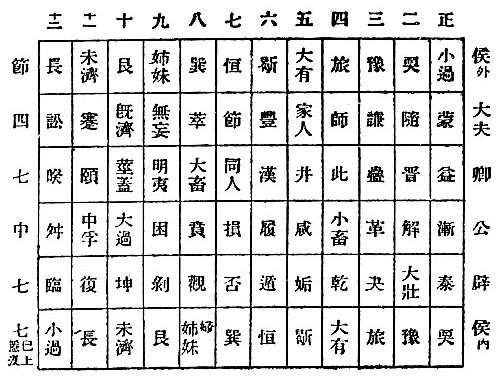 正 二 三 四 五 六 七 八 九 十 十一 十二
侯外 小過 耎 豫 旅 大有 恒 巽 姉妹 艮 未濟 長 節
大夫 蒙 隨 謙 師 家人 豐 節 萃 無妄 既濟 蹇 訟 四
卿 益 晉 蠱 此 井 漢 同人 大畜 明夷 莖蓋 頤 睽 七
公 漸 解 革 小畜 咸 履 損 賁 困 大過 中孚 舛 中
辟 泰 大壯 夬 乾 姤 遁 否 觀 剝 坤 復 臨 七
侯内 耎 豫 旅 大有 恒 巽 姉妹 艮 未濟 長 小過 七 已上